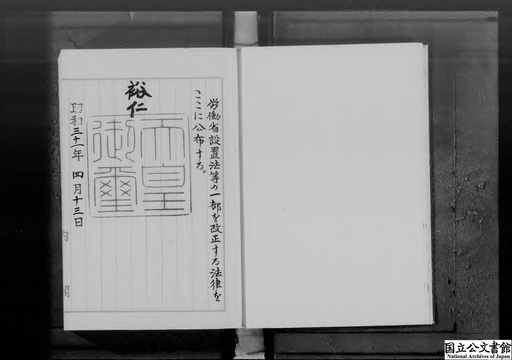 労働省設置法等の一部を改正する法律を
ここに公布する。
裕仁
天皇
御璽
昭和三十一年 四月十三日
内
閣
国立公文書館
National Archives of Japan